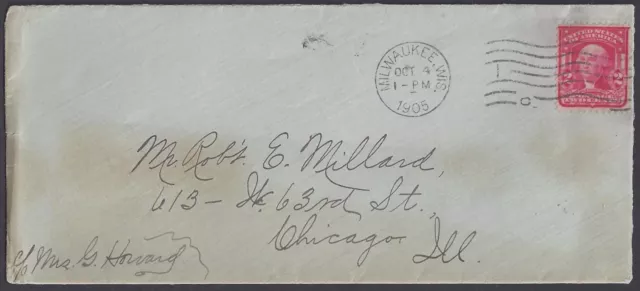 UNITED STATES
OF AMERICA
2 2
MILWAUKEE, WIS.
OCT 4
1-PM
1905
Mr. Rob't. E. Millard,
613 - W. 63rd St.,
Chicago Ill.
c/o Mrs. G. Howard